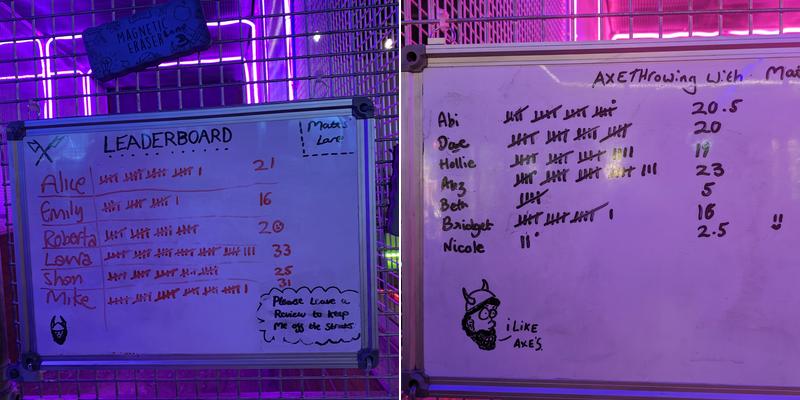 MAGNETIC
ERASER
LEADERBOARD
Matt's
Lane
Alice 21
Emily 16
Roberta 20
Lowa 33
Shon 25
Mike 31
Please Leave a
Review to keep
Me off the Streets
AXETHrowing with Mat
Abi 20.5
Dave 20
Hollie 19
23
Beth 5
Bridget 16
Nicole 2.5 !!
i LiKE
AXE'S.